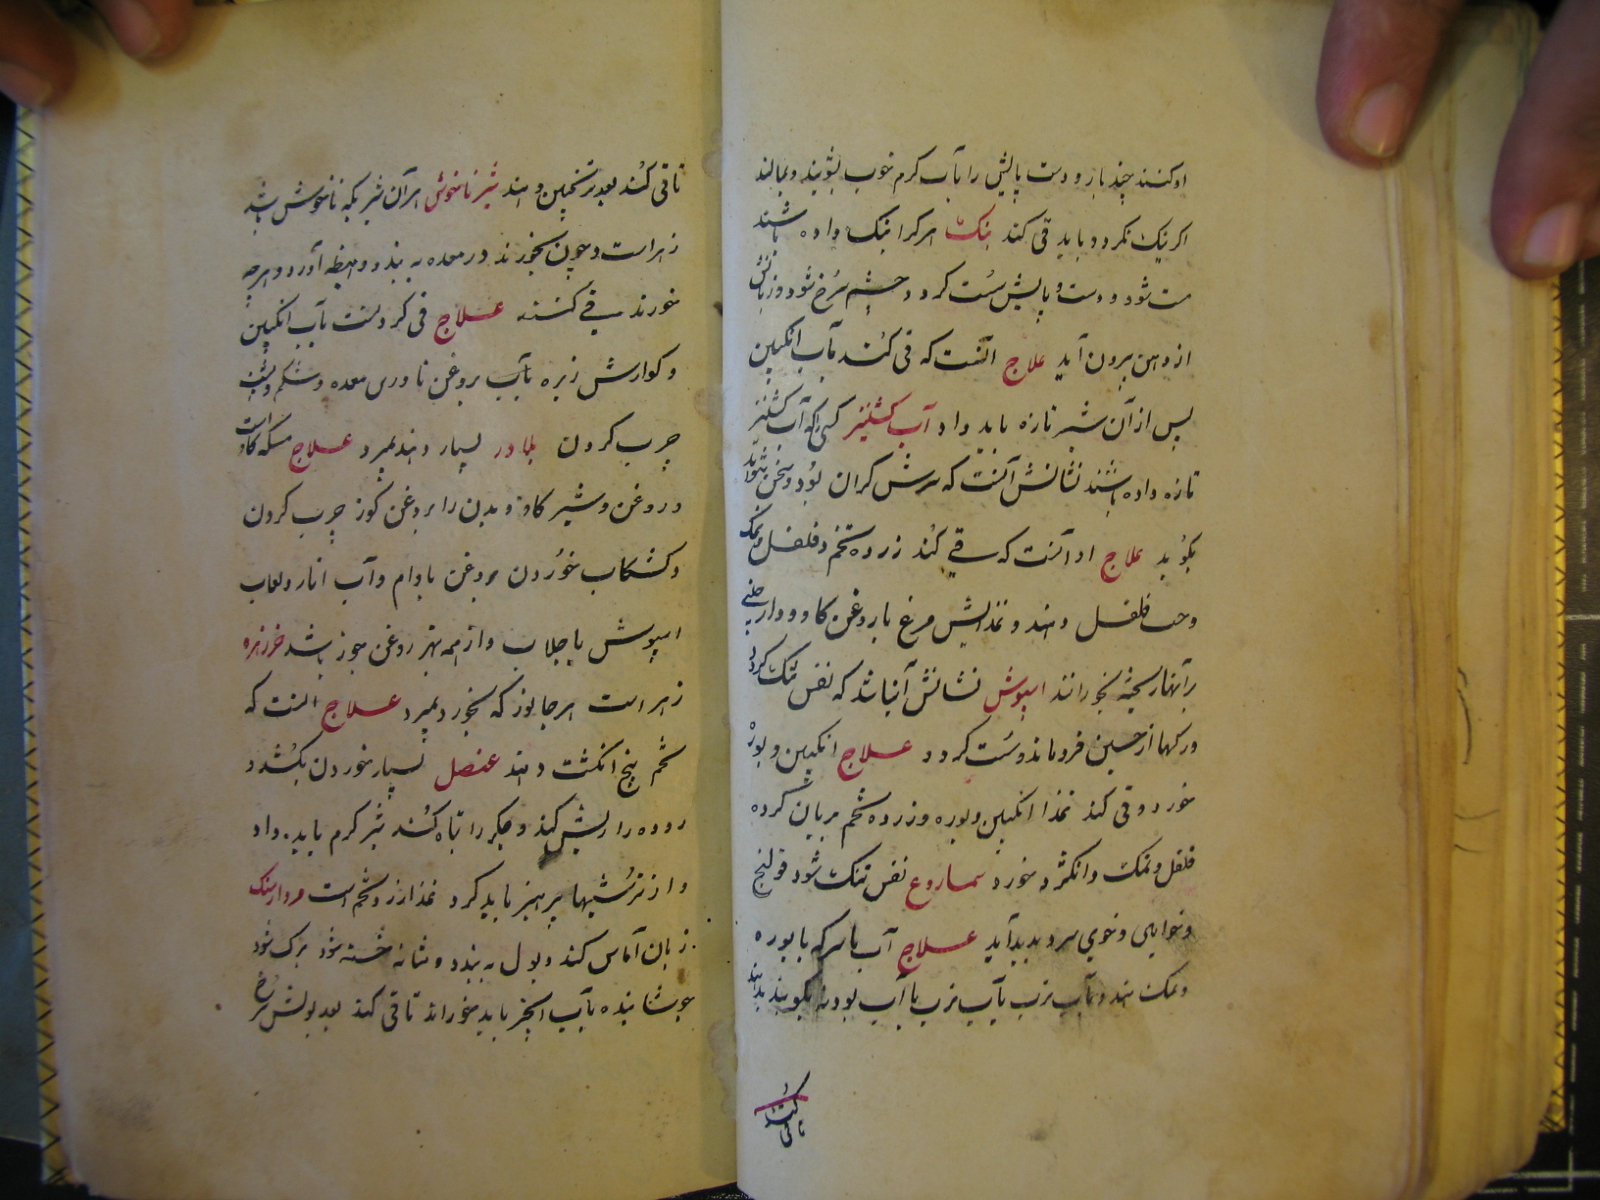 او کنند چند بار و دست و پایش را بآب گرم خوب بشویند و بمالند
اگر نیک نگردد باید قی کند بنک هر کرا بنک داده باشند
مست شود و دست و پایش سست گردد و چشم سرخ شود و زبانش
از دهن برون آید علاج آنست که قی کند بآب انگبین
پس از آن شیر تازه باید داد آب کشنیز کسی را که آب کشنیز
تازه داده باشند نشانش آنست که سرش گران بود و سخن نتواند
بگوید علاج او آنست که قی کند زرده تخم و فلفل و نمک
و حب فلفل دهند و غذایش مرغ با روغن گاو و دارچینی
بر آنها ریخته بخورانند اسپوش نشانش آن باشد که نفس تنک گردد
و رگها از جستن فرو ماند و سست گردد علاج انگبین و بوره
خورد و قی کند غذا انگبین و بوره و زرده تخم بریان کرده
فلفل و نمک و انگژد خورد سماروغ نفس تنک شود قولنج
و خوابای و خوی سرد پدید آید علاج آب با سرکه با بوره
و نمک دهند و آب ترب بآب ترب با آب بودنه بکوبند بدهند
تا قی کند
تا قی کند بعد ترنجبین دهند شیر ناخوش هر آن شیر بکه ناخوش باشد
زهر است و چون بخورند در معده به بندد و هیظه آورد و هرچه
خورند قی کنند علاج قی کردنست بآب انگبین
و کوارش زیره بآب بروغن ناوری معده و شکم و پشت
چرب کردن بلادر بسیار دهند بمیرد علاج مسکه گاو است
و روغن و شیر گاو و بدن را بروغن کوز چرب کردن
و کشکاب خوردن بروغن بادام و آب انار و لعاب
اسپوش با جلاب و از همه بهتر روغن جوز باشد خرزهره
زهر است هر جانور که بخورد بمیرد علاج آنست که
تخم پنج انگشت دهند عنصل بسیار خوردن بکشد و
روده را ریش کند و جگر را تباه کند شیر گرم باید داد
و از ترشیها پرهیز باید کرد غذا زرده تخم است مردارسنک
زبان آماس کند و بول به بندد و مثانه خسته شود برک شود
جوشانیده بآب انجیر باید خوراند تا قی کند بعد بولش سرخ